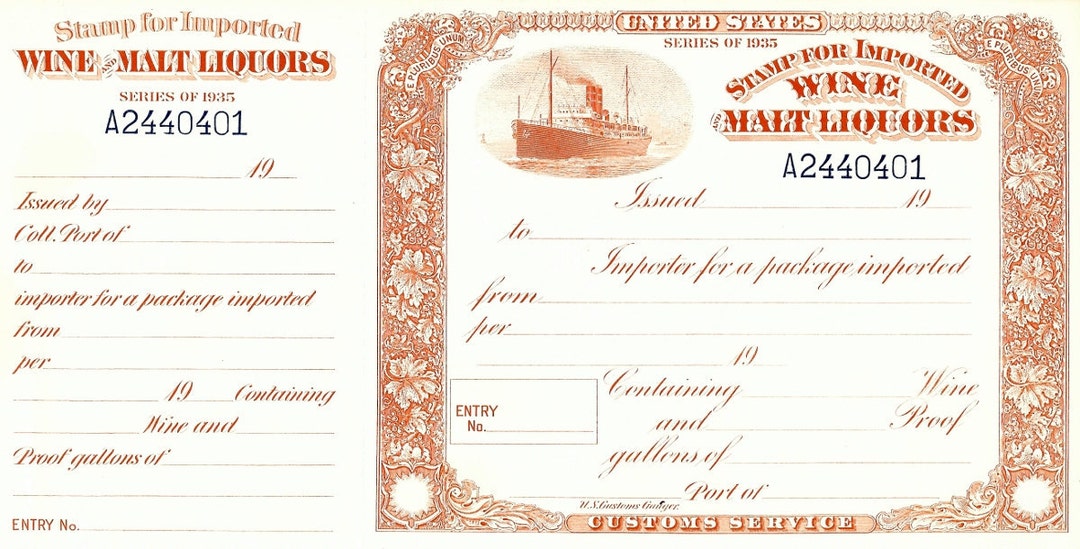 Stamp for Imported
WINE AND MALT LIQUORS
SERIES OF 1935
A2440401
19
Issued by
Coll. Port of
to
importer for a package imported
from
per
19 Containing
Wine and
Proof gallons of
ENTRY No.
UNITED STATES
E PLURIBUS UNUM
E PLURIBUS UNUM
SERIES OF 1935
STAMP FOR IMPORTED
WINE
AND MALT LIQUORS
A2440401
Issued 19
to
Importer for a package imported
from
per
19
Containing Wine
ENTRY
No.
and Proof
gallons of
Port of
U.S. Customs Gauger.
CUSTOMS SERVICE